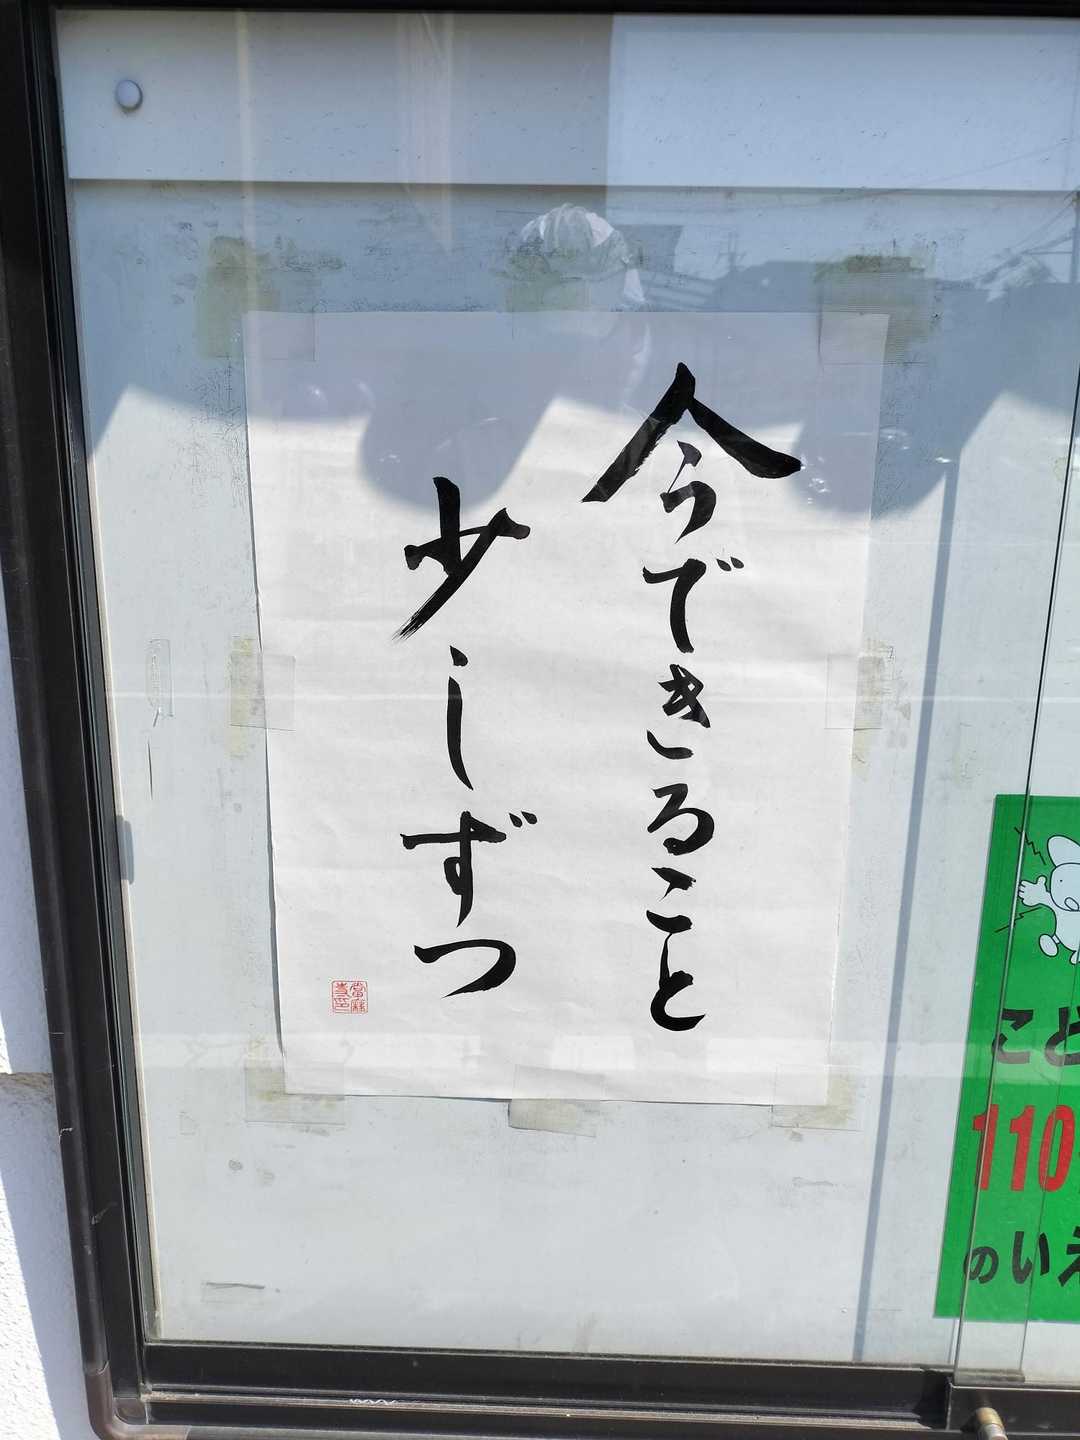 今できること
少しずつ
こど
110
のいえ